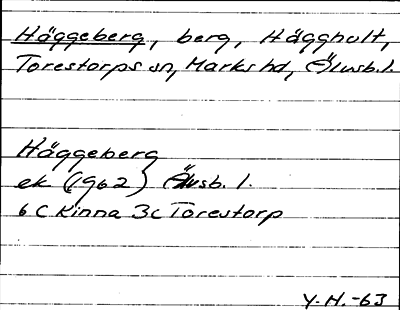 Häggeberg, berg, Hägghult,
Torestorps sn, Marks hd, Älvsb.l.
Häggeberg
ek (1962) Älvsb. l.
6 C Kinna 3c Torestorp
Y.H.-63